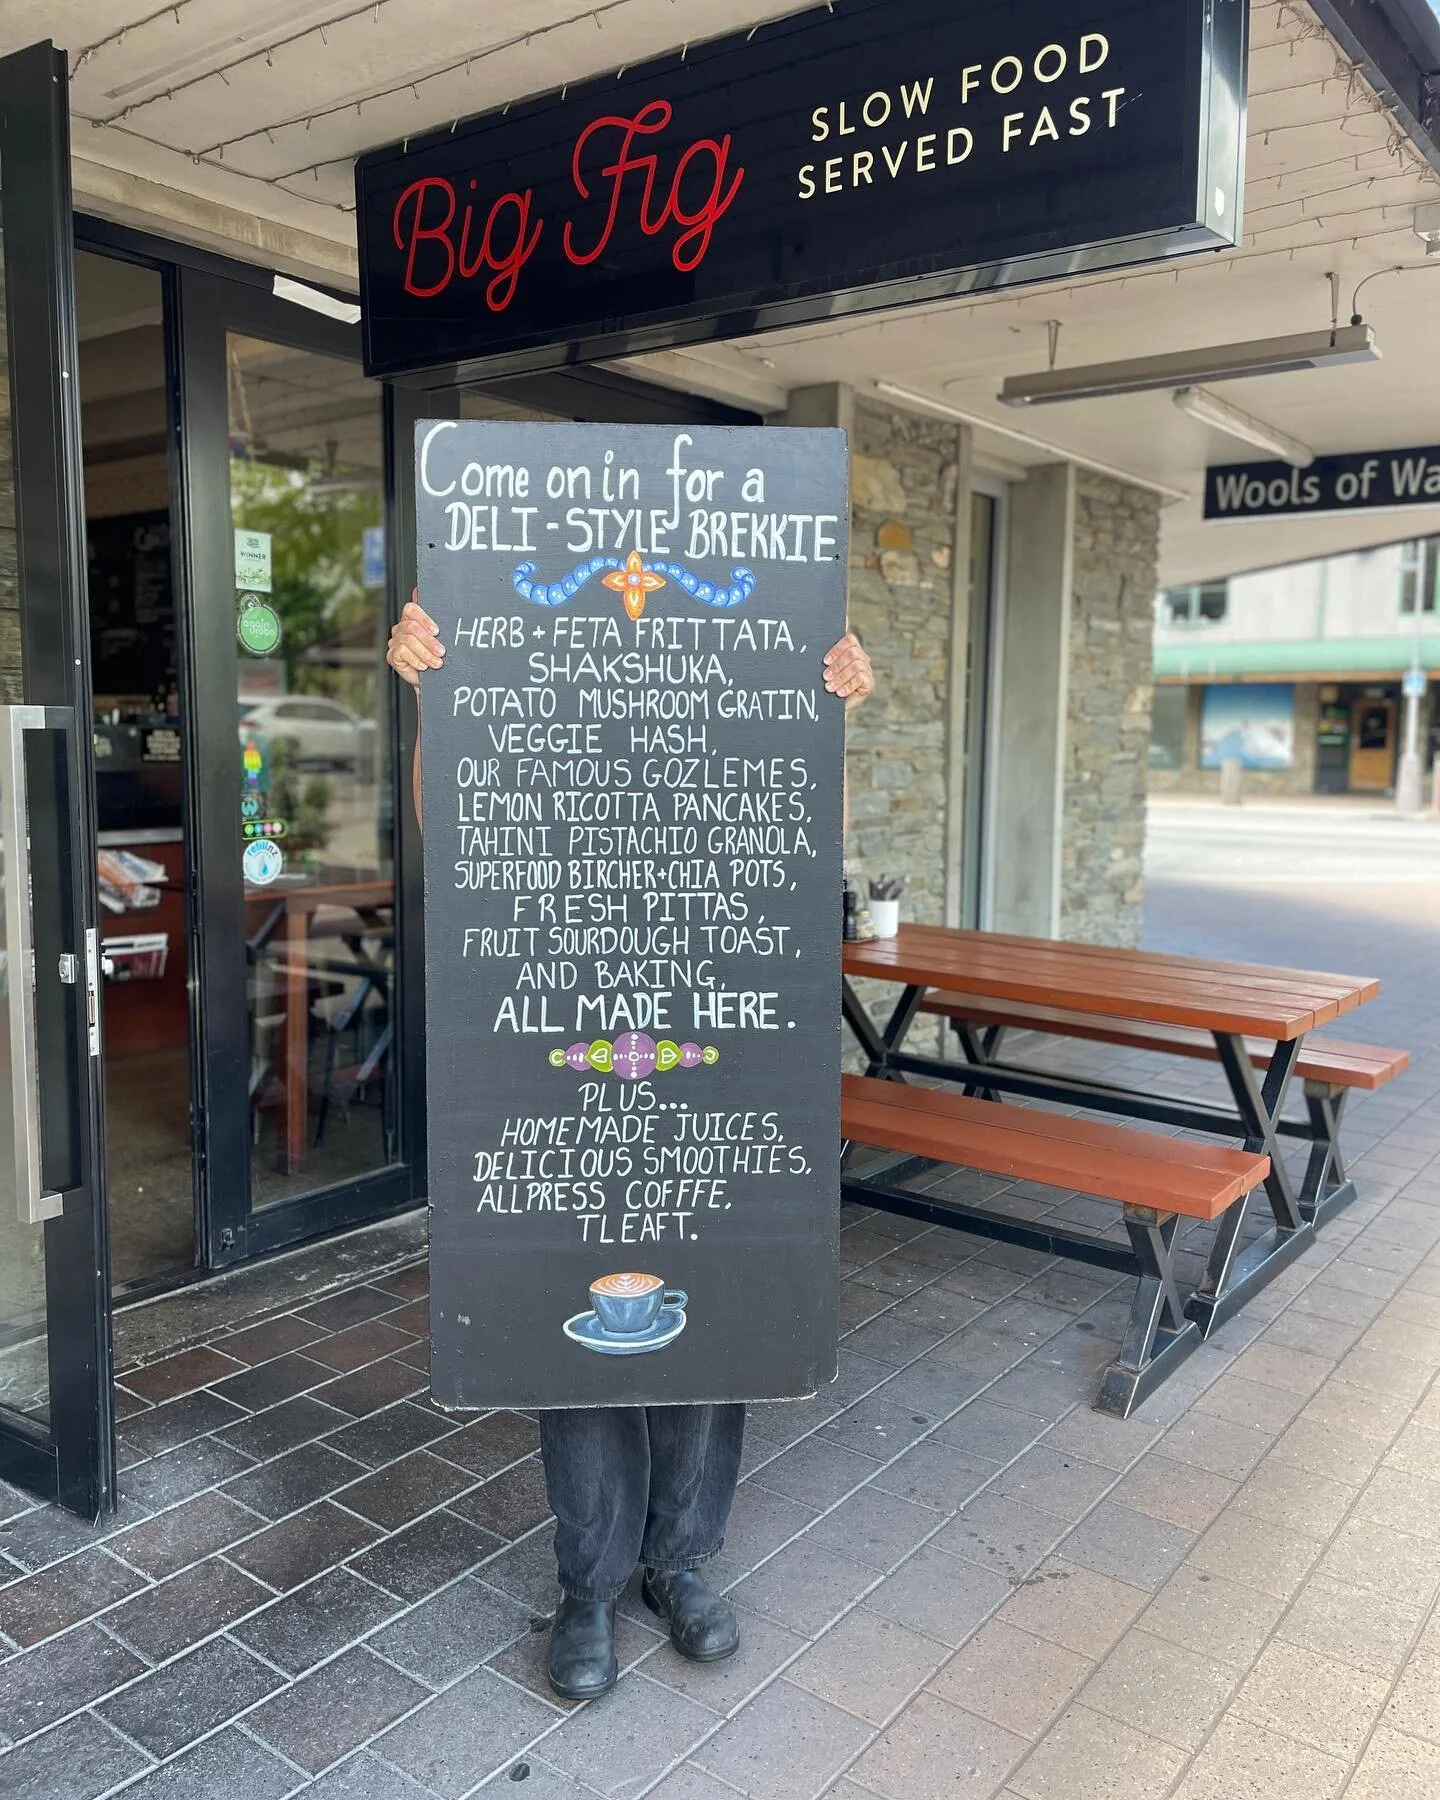 Big Fig
SLOW FOOD
SERVED FAST
Wools of Wa
Come on in for a
DELI-STYLE BREKKIE
WINNER
HERB + FETA FRITTATA,
SHAKSHUKA,
POTATO MUSHROOM GRATIN,
VEGGIE HASH,
OUR FAMOUS GOZLEMES,
LEMON RICOTTA PANCAKES,
TAHINI PISTACHIO GRANOLA,
SUPERFOOD BIRCHER+CHIA POTS,
FRESH PITTAS,
FRUIT SOURDOUGH TOAST,
AND BAKING,
ALL MADE HERE.
PLUS...
HOMEMADE JUICES,
DELICIOUS SMOOTHIES,
ALLPRESS COFFFE,
TLEAFT.
again
again
refillnz